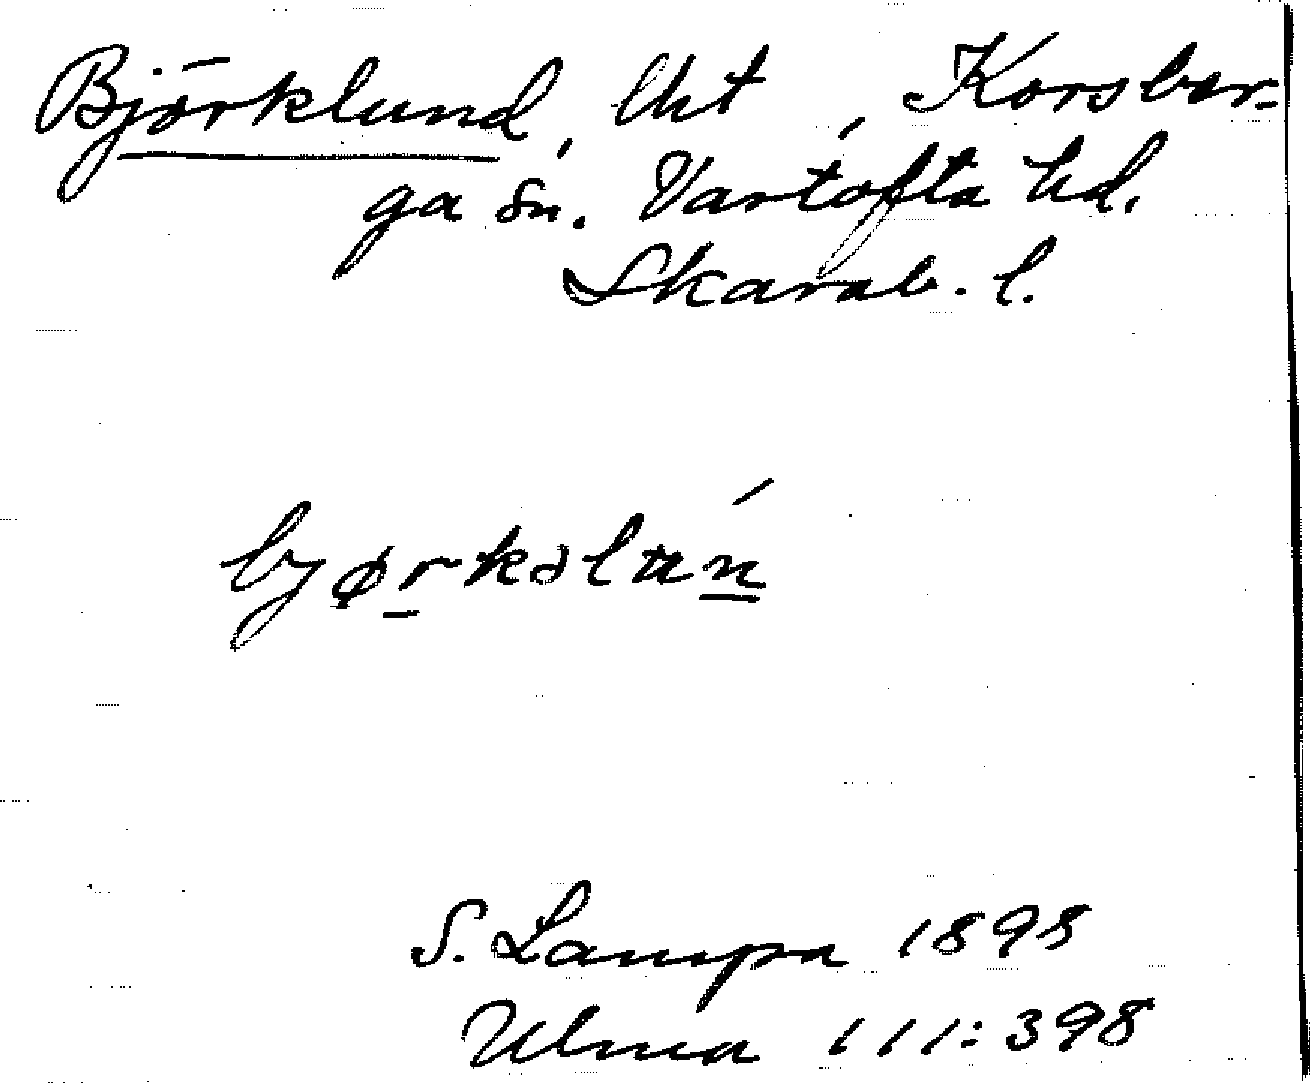 Björklund, lht, Korsber-
ga sn. Vartofta hd.
Skarab. l.
bjørkəlun
S. Lampa 1898
Ulma 111:398